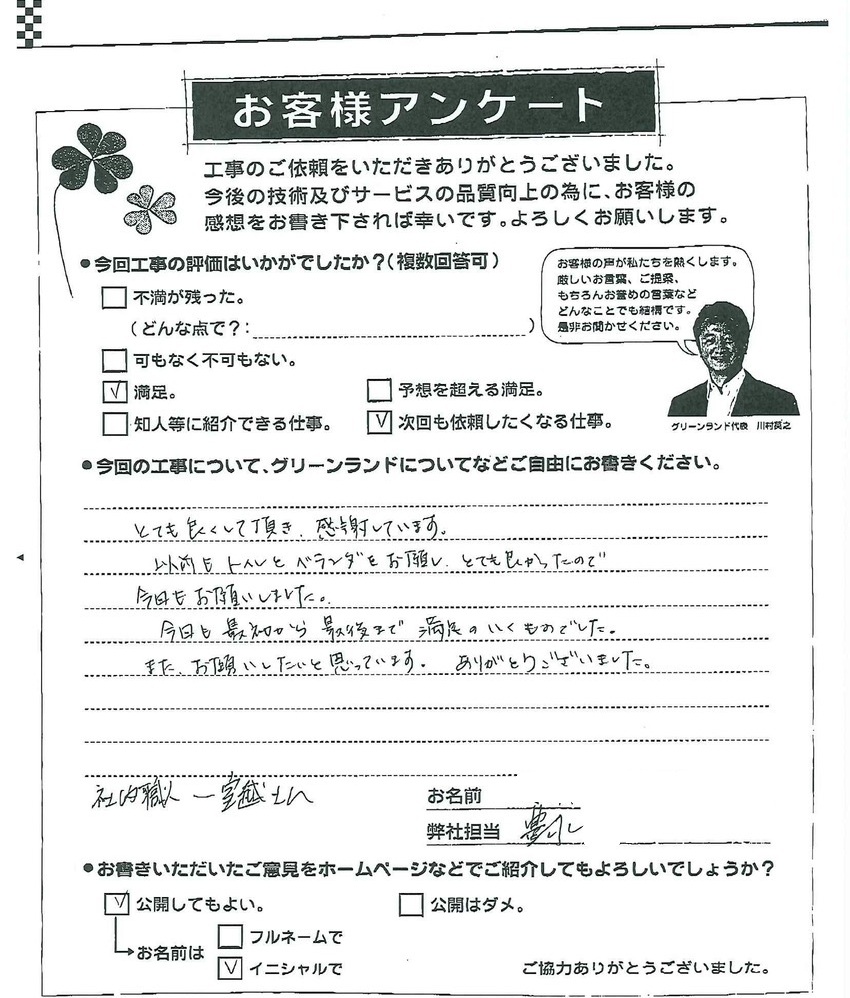 お客様アンケート
工事のご依頼をいただきありがとうございました。
今後の技術及びサービスの品質向上の為に、お客様の
感想をお書き下されば幸いです。よろしくお願いします。
●今回工事の評価はいかがでしたか?(複数回答可)
不満が残った。
(どんな点で?: )
可もなく不可もない。
満足。
予想を超える満足。
知人等に紹介できる仕事。
次回も依頼したくなる仕事。
お客様の声が私たちを熱くします。
厳しいお言葉、ご提案、
もちろんお誉めの言葉など
どんなことでも結構です。
是非お聞かせください。
グリーンランド代表 川村良之
●今回の工事について、グリーンランドについてなどご自由にお書きください。
とても良くして頂き、感謝しています。
以前もトイレとベランダをお願いし、とても良かったので
今回もお願いしました。
今回も最初から最後まで満足のいくものでした。
また、お願いしたいと思っています。 ありがとうございました。
社内職人
お名前
弊社担当
●お書きいただいたご意見をホームページなどでご紹介してもよろしいでしょうか?
公開してもよい。
公開はダメ。
お名前は
フルネームで
イニシャルで
ご協力ありがとうございました。